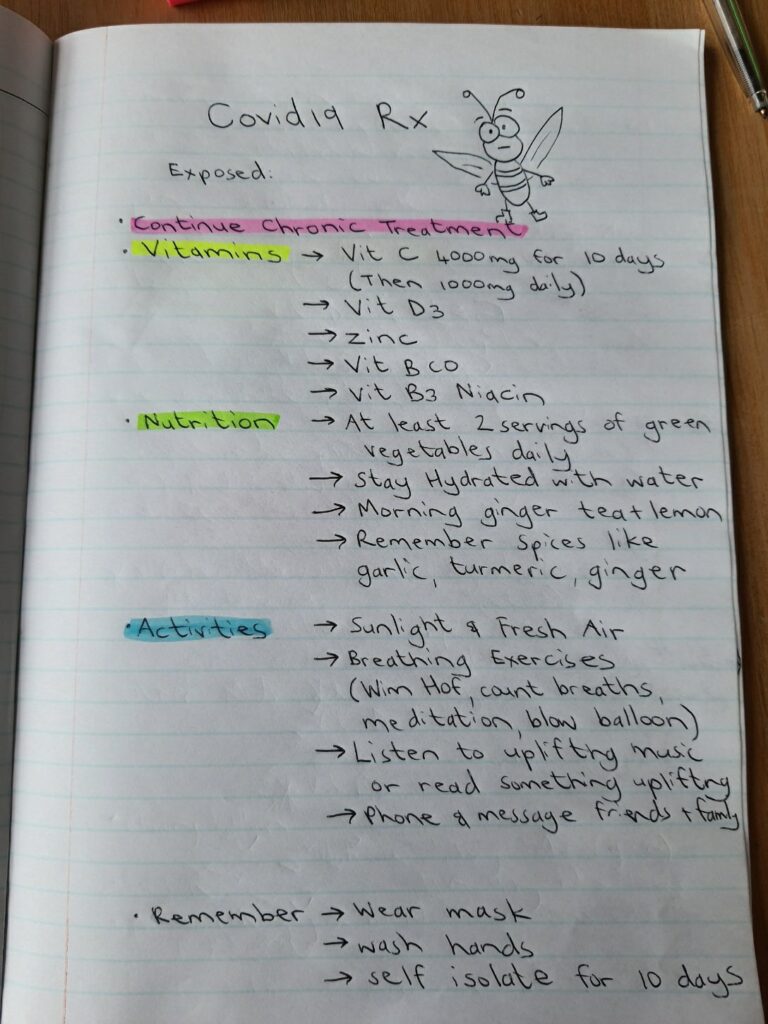 Covid19 Rx
Exposed:
· Continue Chronic Treatment
· Vitamins → Vit C 4000mg for 10 days
(Then 1000mg daily)
→ Vit D3
→ Zinc
→ Vit BCO
→ Vit B3 Niacin
· Nutrition → At least 2 servings of green
vegetables daily
→ Stay Hydrated with water
→ Morning ginger tea + lemon
→ Remember spices like
garlic, turmeric, ginger
· Activities → Sunlight & Fresh Air
→ Breathing Exercises
(Wim Hof, count breaths,
meditation, blow balloon)
→ Listen to upliftng music
or read something upliftng
→ Phone & message friends + family
· Remember → Wear mask
→ wash hands
→ self isolate for 10 days